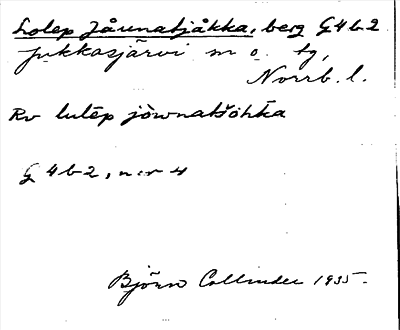 Lolep Jåunatjåkka, berg G4b2
Jukkasjärvi s n o. tg,
Norrb. l.
Rv lulēp jòwnatšåhka
G 4 b 2, n:r 4
Björn Collinder 1935.